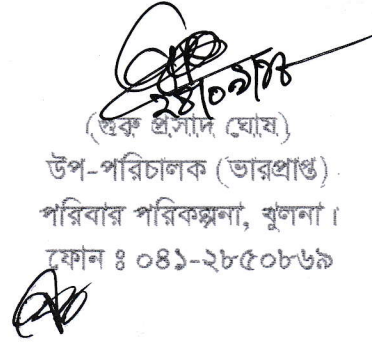 (গুরু প্রসাদ ঘোষ)
উপ-পরিচালক (ভারপ্রাপ্ত)
পরিবার পরিকল্পনা, খুলনা।
ফোন ঃ ০৪১-২৮৫০৮৬৯